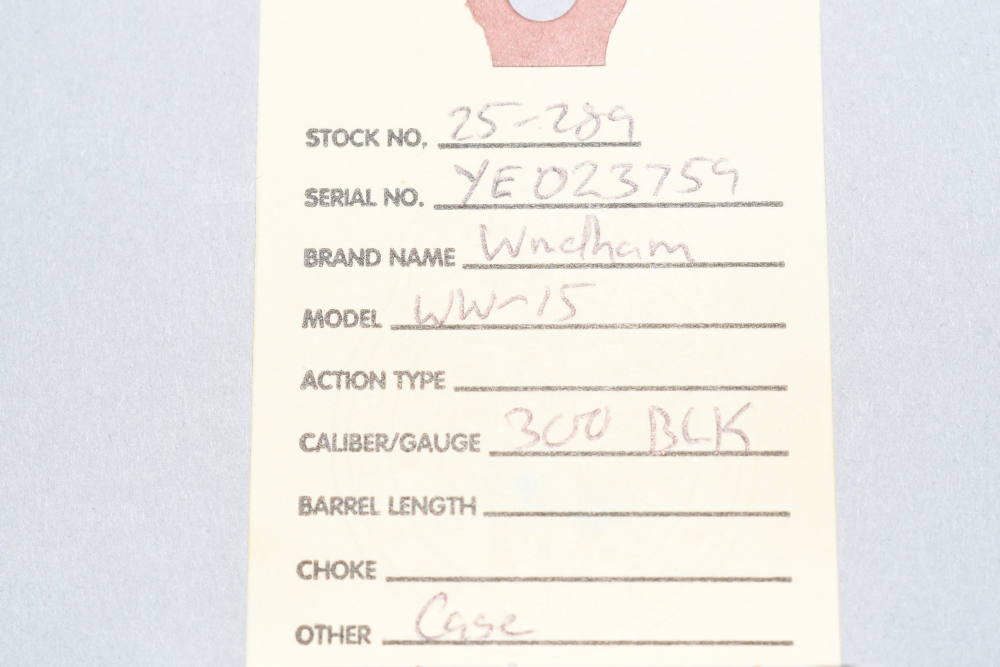 STOCK NO. 25-289
SERIAL NO. YE023759
BRAND NAME Wndham
MODEL WW-15
ACTION TYPE
CALIBER/GAUGE 300 BLK
BARREL LENGTH
CHOKE
OTHER Case